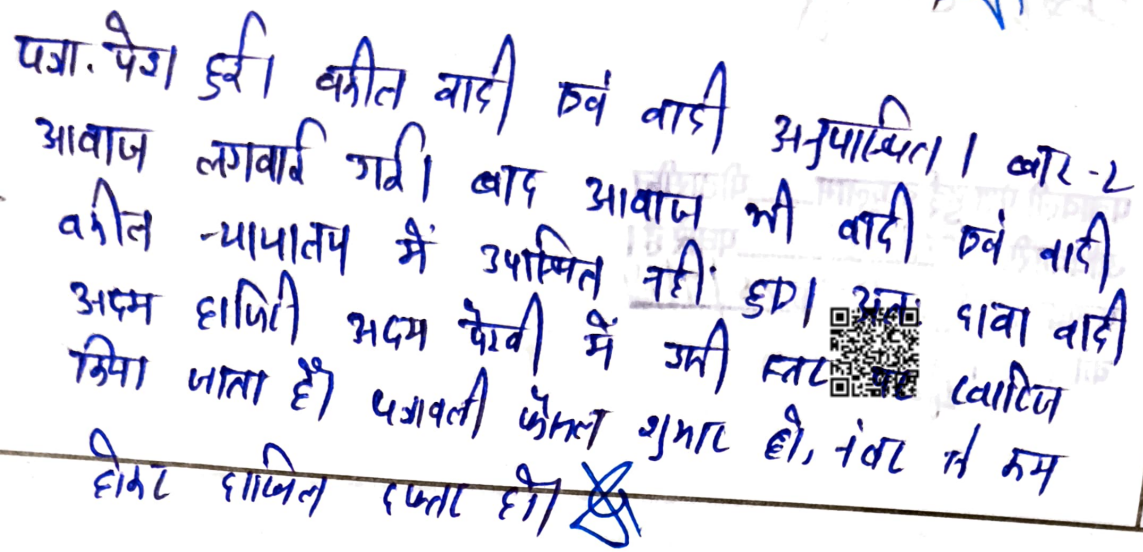 पत्रा. पेश हुई। वकील वादी एवं वादी अनुपस्थित। बार-२
आवाज लगवाई गई। बाद आवाज भी वादी एवं वादी
वकील न्यायालय में उपस्थित नहीं हुए। अतः दावा वादी
अदम हाजिरी अदम पैरवी में इसी स्तर पर खारिज
किया जाता है। पत्रावली फैसल शुमार हो, नंबर से कम
होकर दाखिल दफ्तर हो।